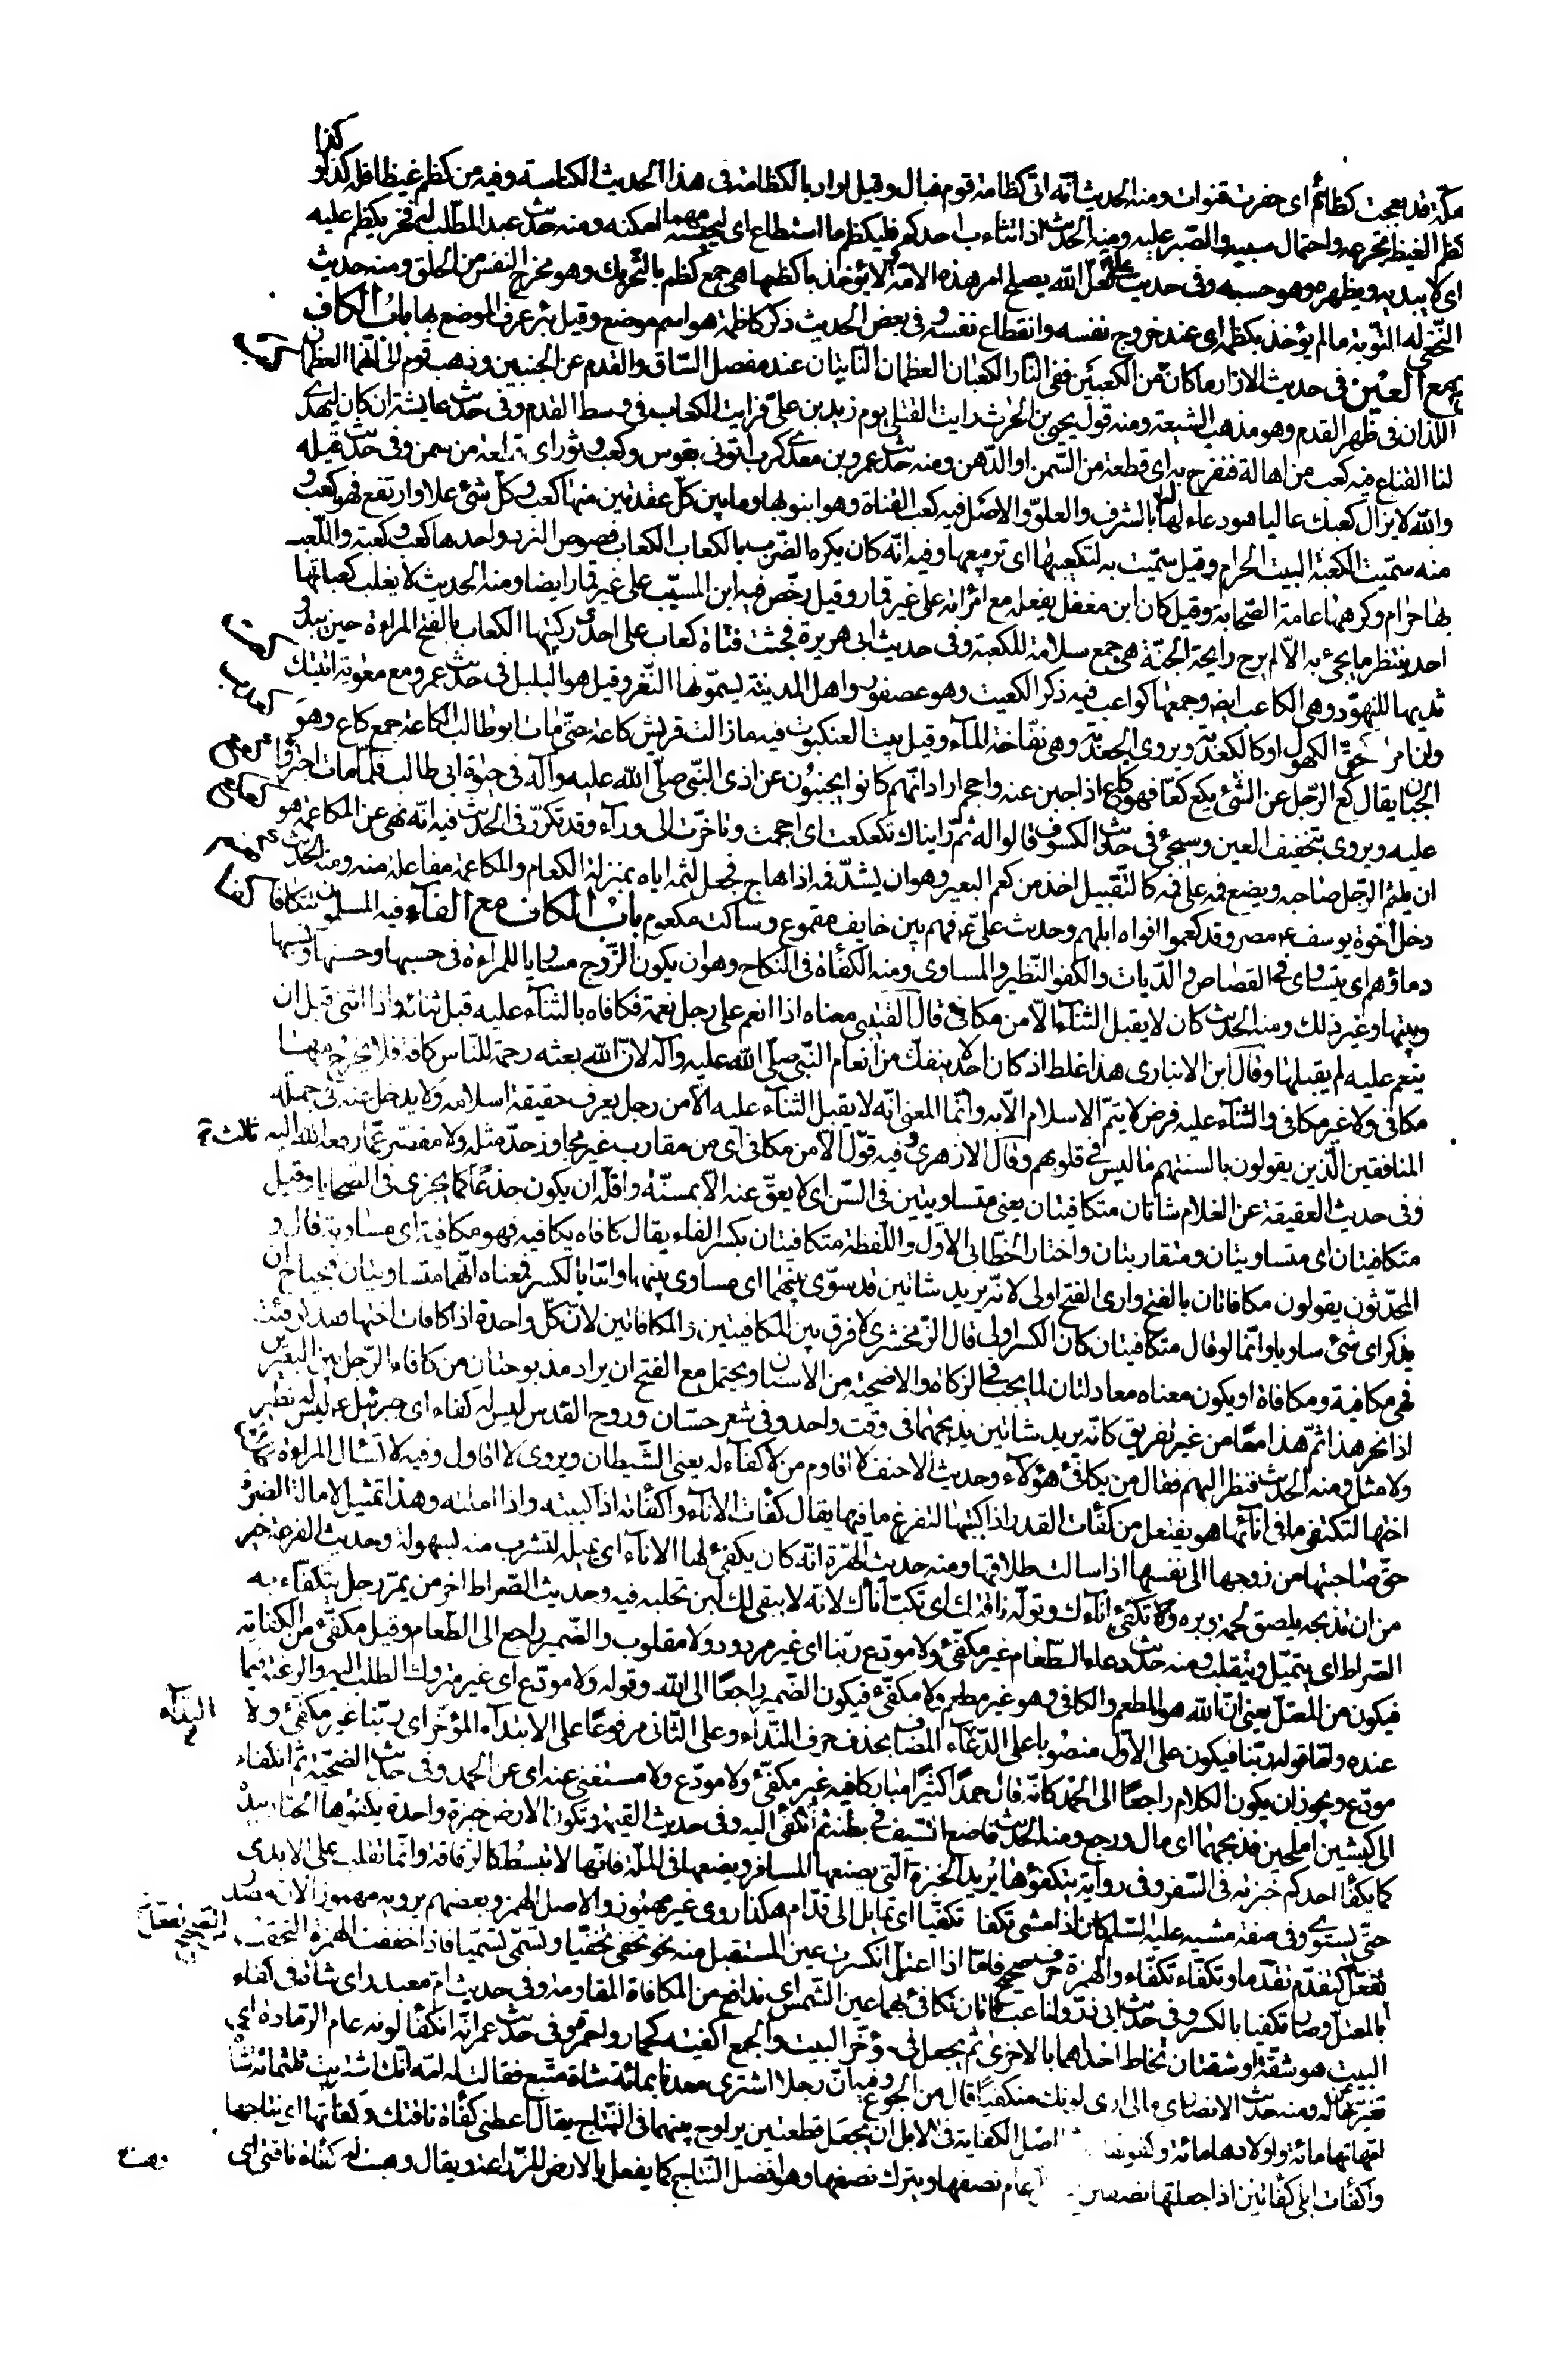 كذا
مكّة قد بعجت كظائم اى حفرت قنوات ومنه الحديث انّه اتى كظامة قوم فبال وقيل اراد بالكظامة فى هذا الحديث الكناسة وفيه من كظم غيظا فله كذا و
كظم الغيظ تجرعه واحتمال سببه والصّبر عليه ومنه الحديث اذا تثاءب احدكم فليكظم ما استطاع اى ليحبسه مهما امكنه ومنه حديث عبد المطّلب له فخر يكظم عليه
اى لا يبديه ويظهره وهو حسبه وفى حديث علىّ لعلّ الله يصلح امر هذه الامّة ولا يؤخذ باكظامها هى جمع كظم بالتّحريك وهو مخرج النفس من الحلق ومنه حديث
النّخعى له التّوبة ما لم يؤخذ بكظمه اى عند خروج نفسه وانقطاع نفسه وفى بعض الحديث ذكر كاظمة هو اسم موضع وقيل بئر عرف الموضع بها باب الكاف
مع العين فى حديث الازار ما كان من الكعبين ففى النّار الكعبان العظمان النّابتان عند مفصل السّاق والقدم عن الجنبين وذهب قوم الى انّهما العظمان
اللّذان فى ظهر القدم وهو مذهب الشيعة ومنه قول يحيى بن الحرث رايت القتلى يوم زيد بن علىّ فرايت الكعاب فى وسط القدم وفى حديث عايشة ان كان ليهدى
لنا القناع فيه كعب من اهالة فنفرح به اى قطعة من السّمن او الدّهن ومنه حديث عمرو بن معدى كرب اتونى بقوس وكعب وثور اى قطعة من سمن وفى حديث قيلة
والله لا يزال كعبك عاليا هو دعاء لها بالشرف والعلوّ والاصل فيه كعب القناة وهو انبوبها وما بين كلّ عقدتين منها كعب وكلّ شئ علا وارتفع فهو كعب و
منه سمّيت الكعبة البيت الحرام وقيل سمّيت به لتكعيبها اى تربيعها وفيه انّه كان يكره الضّرب بالكعاب الكعاب فصوص النّرد واحدها كعب وكعبة واللّعب
بها حرام وكرهها عامة الصّحابة وقيل كان ابن مغفل يفعله مع امرأته على غير قمار وقيل رخّص فيه ابن المسيّب على غير قمار ايضا ومنه الحديث لا يغلب كعباتها
احد ينتظر ما يجئ به الا لم يرح رايحة الجنّة هى جمع سلامة للكعبة وفى حديث ابى هريرة فجثت فتاة كعاب على احدى ركبتيها الكعاب بالفتح المراءة حين يبدو
ثديها للنهود وهى الكاعب ايضا وجمعها كواعب فيه ذكر الكعيت وهو عصفور واهل المدينة يسمّونها النّغر وقيل هو البلبل فى حديث عمرو مع معوية اتيتك
وانّ امرك كحقّ الكهول او كالكعدبة ويروى الجعدبة وهى نفّاخة المآء وقيل بيت العنكبوت فيه ما زالت قريش كاعة حتّى مات ابو طالب الكاعة جمع كاع وهو
الجبان يقال كع الرّجل عن الشّئ يكع كعّا فهو كاع اذا جبن عنه واحجم اراد انّهم كانوا يجبنون عن اذى النّبى صلّى الله عليه وآله فى حيوة ابى طالب فلمّا مات اجترؤا
عليه ويروى بتخفيف العين وسيجئ فى حديث الكسوف قالوا له ثمّ رايناك تكعكعت اى احجمت وتاخّرت الى ورآء وقد تكرّر فى الحديث فيه انّه نهى عن المكاعمة هو
ان يلثم الرّجل صاحبه ويضع فمه على فمه كالتقبيل اخذ من كعم البعير وهو ان يشدّ فمه اذا هاج فجعل لثمه اياه بمنزلة الكعام والمكاعمة مفاعلة منه ومنه الحديث
دخل اخوة يوسف ع مصر وقد كعموا افواه ابلهم وحديث علىّ ع فهم بين خايف مقموع وساكت مكعوم باب الكاف مع الفآء فيه المسلمون تتكافأ
دماؤهم اى يتساوى فى القصاص والدّيات والكفو النّظير والمساوى ومنه الكفاءة فى النكاح وهو ان يكون الزّوج مساويا للمراءة فى حسبها وحسنها ونسبها
وبيتها وغير ذلك ومنه الحديث كان لا يقبل الثنآء الّا من مكافئ قال القتيبى معناه اذا انعم على رجل نعمة فكافاه بالثنآء عليه قبل ثنائه واذا اثنى قبل ان
ينعم عليه لم يقبلها وقال ابن الانبارى هذا غلط اذ كان احد لا ينفك من انعام النّبى صلّى الله عليه وآله لانّ الله بعثه رحمة للنّاس كافة فلا يخرج منها
مكافئ ولا غير مكافئ والثّنآء عليه فرض لا يتمّ الاسلام الّا به وانّما المعنى انّه لا يقبل الثنآء عليه الّا من رجل يعرف حقيقة اسلامه ولا يدخل عنده فى جملة
المنافقين الّذين يقولون بالسنتهم ما ليس فى قلوبهم وقال الازهرى وفيه قول الّا من مكافئ اى من مقارب غير مجاوز حدّ مثله ولا مقصّر عمّا رفعه الله اليه
وفى حديث العقيقة عن الغلام شاتان متكافيتان يعنى متساويتين فى السّن اى لا يعقّ عنه الّا بمسنّة واقلّه ان يكون جذعًا كما يجزى فى الضّحايا وقيل
متكافيتان اى متساويتان ومتقاربتان واختار الخطّابى الاوّل واللّفظة متكافيتان بكسر الفاء يقال كافاه يكافيه فهو مكافية اى مساوية قال و
المحدّثون يقولون مكافاتان بالفتح وارى الفتح اولى لانّه يريد شاتين قد سوّى بينهما اى مساوى بينهما وامّا بالكسر فمعناه انّهما متساويتان فيحتاج ان
يذكر اى شئ ساويا وانّما لو قال متكافيتان كان الكسر اولى قال الزّمخشرى لا فرق بين المكافيتين والمكافاتين لانّ كلّ واحدة اذا كافات اختها فقد كوفئت
فهى مكافية ومكافاة او يكون معناه معادلتان لما يجب فى الزكاة والاضحية من الاسنان ويحتمل مع الفتح ان يراد مذبوحتان من كافاء الرّجل بين البعيرين
اذا نحر هذا ثمّ هذا معًا من غير تفريق كانّه يريد شاتين يذبحهما فى وقت واحد وفى شعر حسّان وروح القدس ليس له كفاء اى جبرئيل ع ليس له نظير
ولا مثل ومنه الحديث فنظر اليهم فقال من يكافئ هؤلآء وحديث الاحنف لا اقاوم من لا كفآء له يعنى الشّيطان ويروى لا اقاول وفيه لا تسئال المراءة طلاق
اختها لتكتفئ ما فى انآئها هو يفتعل من كفأت القدر اذا كببتها لتفرغ ما فيها يقال كفأت الانآء واكفأته اذا كببته واذا املته وهذا تمثيل لامالة الضّرة
حقّ صاحبتها من زوجها الى نفسها اذا سالت طلاقها ومنه حديث الهرّة انّه كان يكفئ لها الانآء اى يميله لتشرب منه بسهولة وحديث الفرعة خير
من ان تذبحه يلصق لحمه بوبره وتكفئ انآءك وتولّه ناقتك اى تكبّ انآءك لانّه لا يبقى لك لبن تحلبه فيه وحديث الصّراط اخر من يمرّ رجل يتكفآء به
الصّراط اى يتميّل ويتقلب ومنه حديث دعاء الطّعام غير مكفّئ ولا مودّع ربّنا اى غير مردود ولا مقلوب والضّمير راجع الى الطّعام وقيل مكفّئ من الكفاية
فيكون من المعتلّ يعنى انّ الله هو المطعم والكافى وهو غير مطعم ولا مكفّئ فيكون الضّمير راجعًا الى الله وقوله ولا مودّع اى غير متروك الطلب اليه والرغبة فيما
عنده وامّا قوله ربّنا فيكون على الاوّل منصوبا على النّداء المضاف بحذف حرف النّداء وعلى الثّانى مرفوعًا على الابتدآء المؤخّر اى ربّنا غير مكفّئ ولا
مودّع ويجوز ان يكون الكلام راجعًا الى الحمد كانّه قال حمدًا كثيرًا مباركا فيه غير مكفّئ ولا مودّع ولا مستغنى عنه اى عن الحمد وفى حديث الضّحيّة ثمّ انكفاء
الى كبشين املحين فذبحهما اى مال ورجع ومنه الحديث فاضع السّيف فى بطنه ثم انكفئ اليه وفى حديث القيمة وتكون الارض خبزة واحدة يكفؤها الجبّار بيده
كما يكفأ احدكم خبزته فى السّفر وفى رواية يتكفؤها يريد الخبزة الّتى يصنعها المسافر ويضعها فى الملّة فانّها لا تبسط كالرّقاقة وانّما تقلب على الايدى
حتّى يستوى وفى صفة مشيه عليه السّلم كان اذا مشى تكفا تكفّيا اى تمايل الى قدّام هكذا روى غير مهموز والاصل الهمز وبعضهم يرويه مهموزا لانّ مصدر
تفعّل كتقدّم تقدّما وتكفّاء تكفّاء والهمزة حرف صحيح فامّا اذا اعتلّ انكسرت عين المستقبل منه نحو تخفّى تخفّيا وتسمّى تسمّيا فاذا خففت الهمزة التحقت
بالمعتلّ وصار تكفّيا بالكسر وفى حديث ابى ذرّ ولنا عباءتان نكافئ بهما عين الشّمس اى ندافع من المكافاة المقاومة وفى حديث امّ معبد راى شاة فى كفاء
البيت هو شقّة او شقتان تخاط احداهما بالاخرى ثمّ يجعل فى مؤخّر البيت والجمع اكفية كحمار واحمرة وفى حديث عمر انّه انكفأ لونه عام الرّمادة اى
تغيّر عن حاله ومنه حديث الانصارى ما لى ارى لونك منكفئًا قال من الجوع وفيه انّ رجلا اشترى معدنا بمائة شاة متبع فقالت له امّه انّك اشتريت بثلثمائة شاة
امّهاتها مائة واولادها مائة وكفوتها اصل الكفاية فى الابل ان يجعل قطعتين يراوح بينهما فى النّتاج يقال اعطنى كفأة ناقتك وكفاتها اى نتاجها
واكفأت ابلى كفأتين اذا جعلتها نصفين عام نصفها ويترك نصفها وهو افضل النّتاج كما يفعل بالارض للزّراعة ويقال وهبت له كفأة ناقتى اى